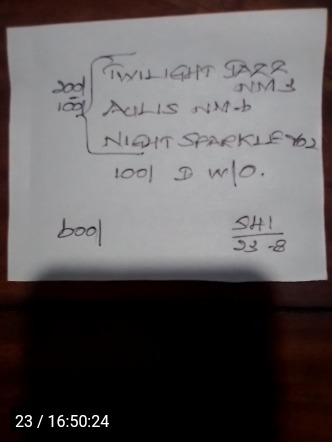 200/ TWILIGHT JAZZ
NM 3
100/ AULIS NM-6
NIGHT SPARKLE
100/ D W/O.
600/
SH1
23-8
23 / 16:50:24